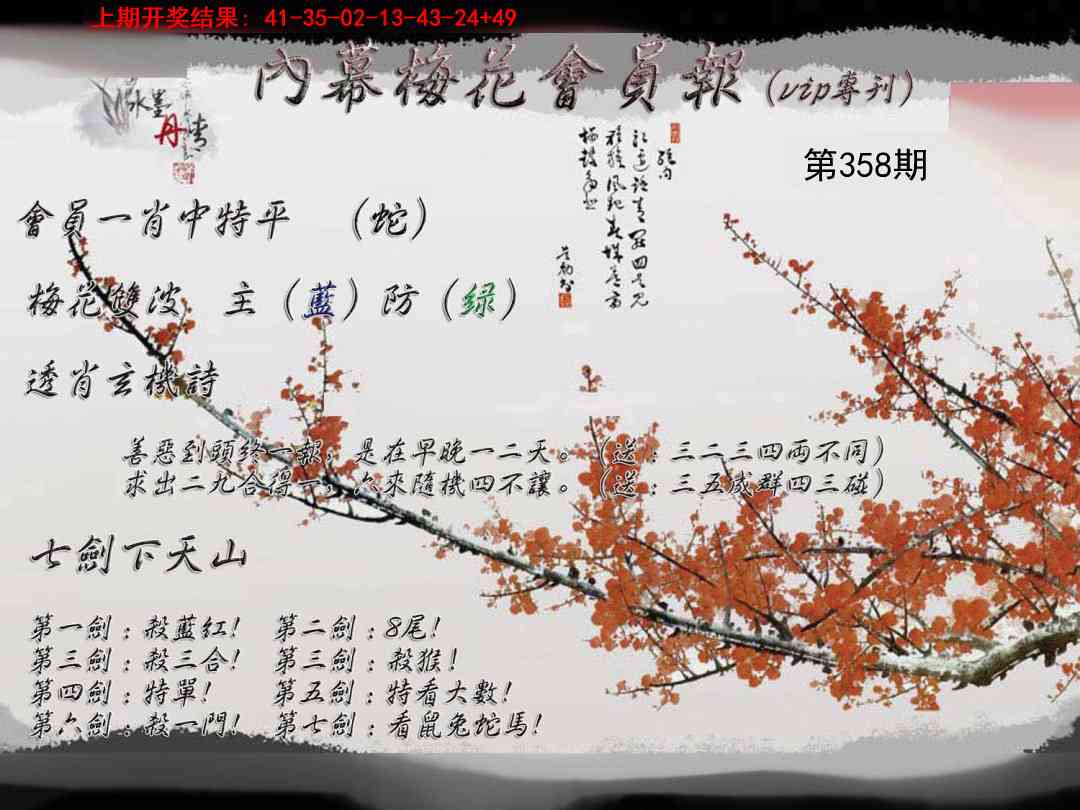 上期开奖结果: 41-35-02-13-43-24+49
內幕梅花會員報(vip專刊)
水墨
丹青
第358期
會員一肖中特平 (蛇)
梅花雙波 主(藍)防(绿)
透肖玄機詩
善惡到頭終一報，是在早晚一二天。(送:三二三四兩不同)
求出二九合得一，六來隨機四不讓。(送:三五成群四三碰)
七劍下天山
第一劍:殺藍紅! 第二劍:8尾!
第三劍:殺三合! 第三劍:殺猴!
第四劍:特單! 第五劍:特看大數!
第六劍:殺一門! 第七劍:看鼠兔蛇馬!